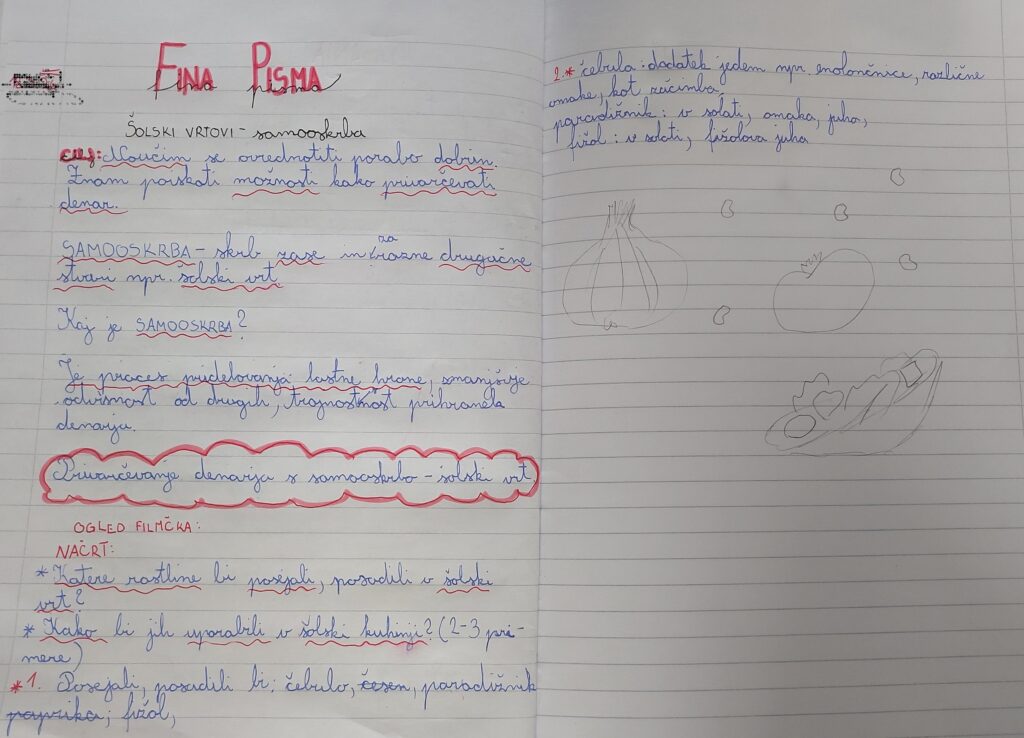 FINA PISMA
fina pisma
ŠOLSKI VRTOVI - samooskrba
CILJ: Naučim se ovrednotiti porabo dobrin.
Znam poiskati možnosti kako privarčevati
denar.
SAMOOSKRBA - skrb zase in za razne drugačne
stvari npr. šolski vrt
Kaj je SAMOOSKRBA?
Je proces pridelovanja lastne hrane, zmanjšuje
odvisnost od drugih, trajnostnost prihranela
denarja.
Privarčevanje denarja s samooskrbo - šolski vrt
OGLED FILMČKA:
NAČRT:
* Katere rastline bi posejali, posadili v šolski
vrt?
* Kako bi jih uporabili v šolski kuhinji? (2-3 pri-
mere)
* 1. Posejali, posadili bi: čebulo, česen, paradižnik
paprika; fižol,
2.* čebula: dodatek jedem npr. enolončnice, različne
omake, kot začimba,
paradižnik: v solati, omaka, juha,
fižol: v solati, fižolova juha